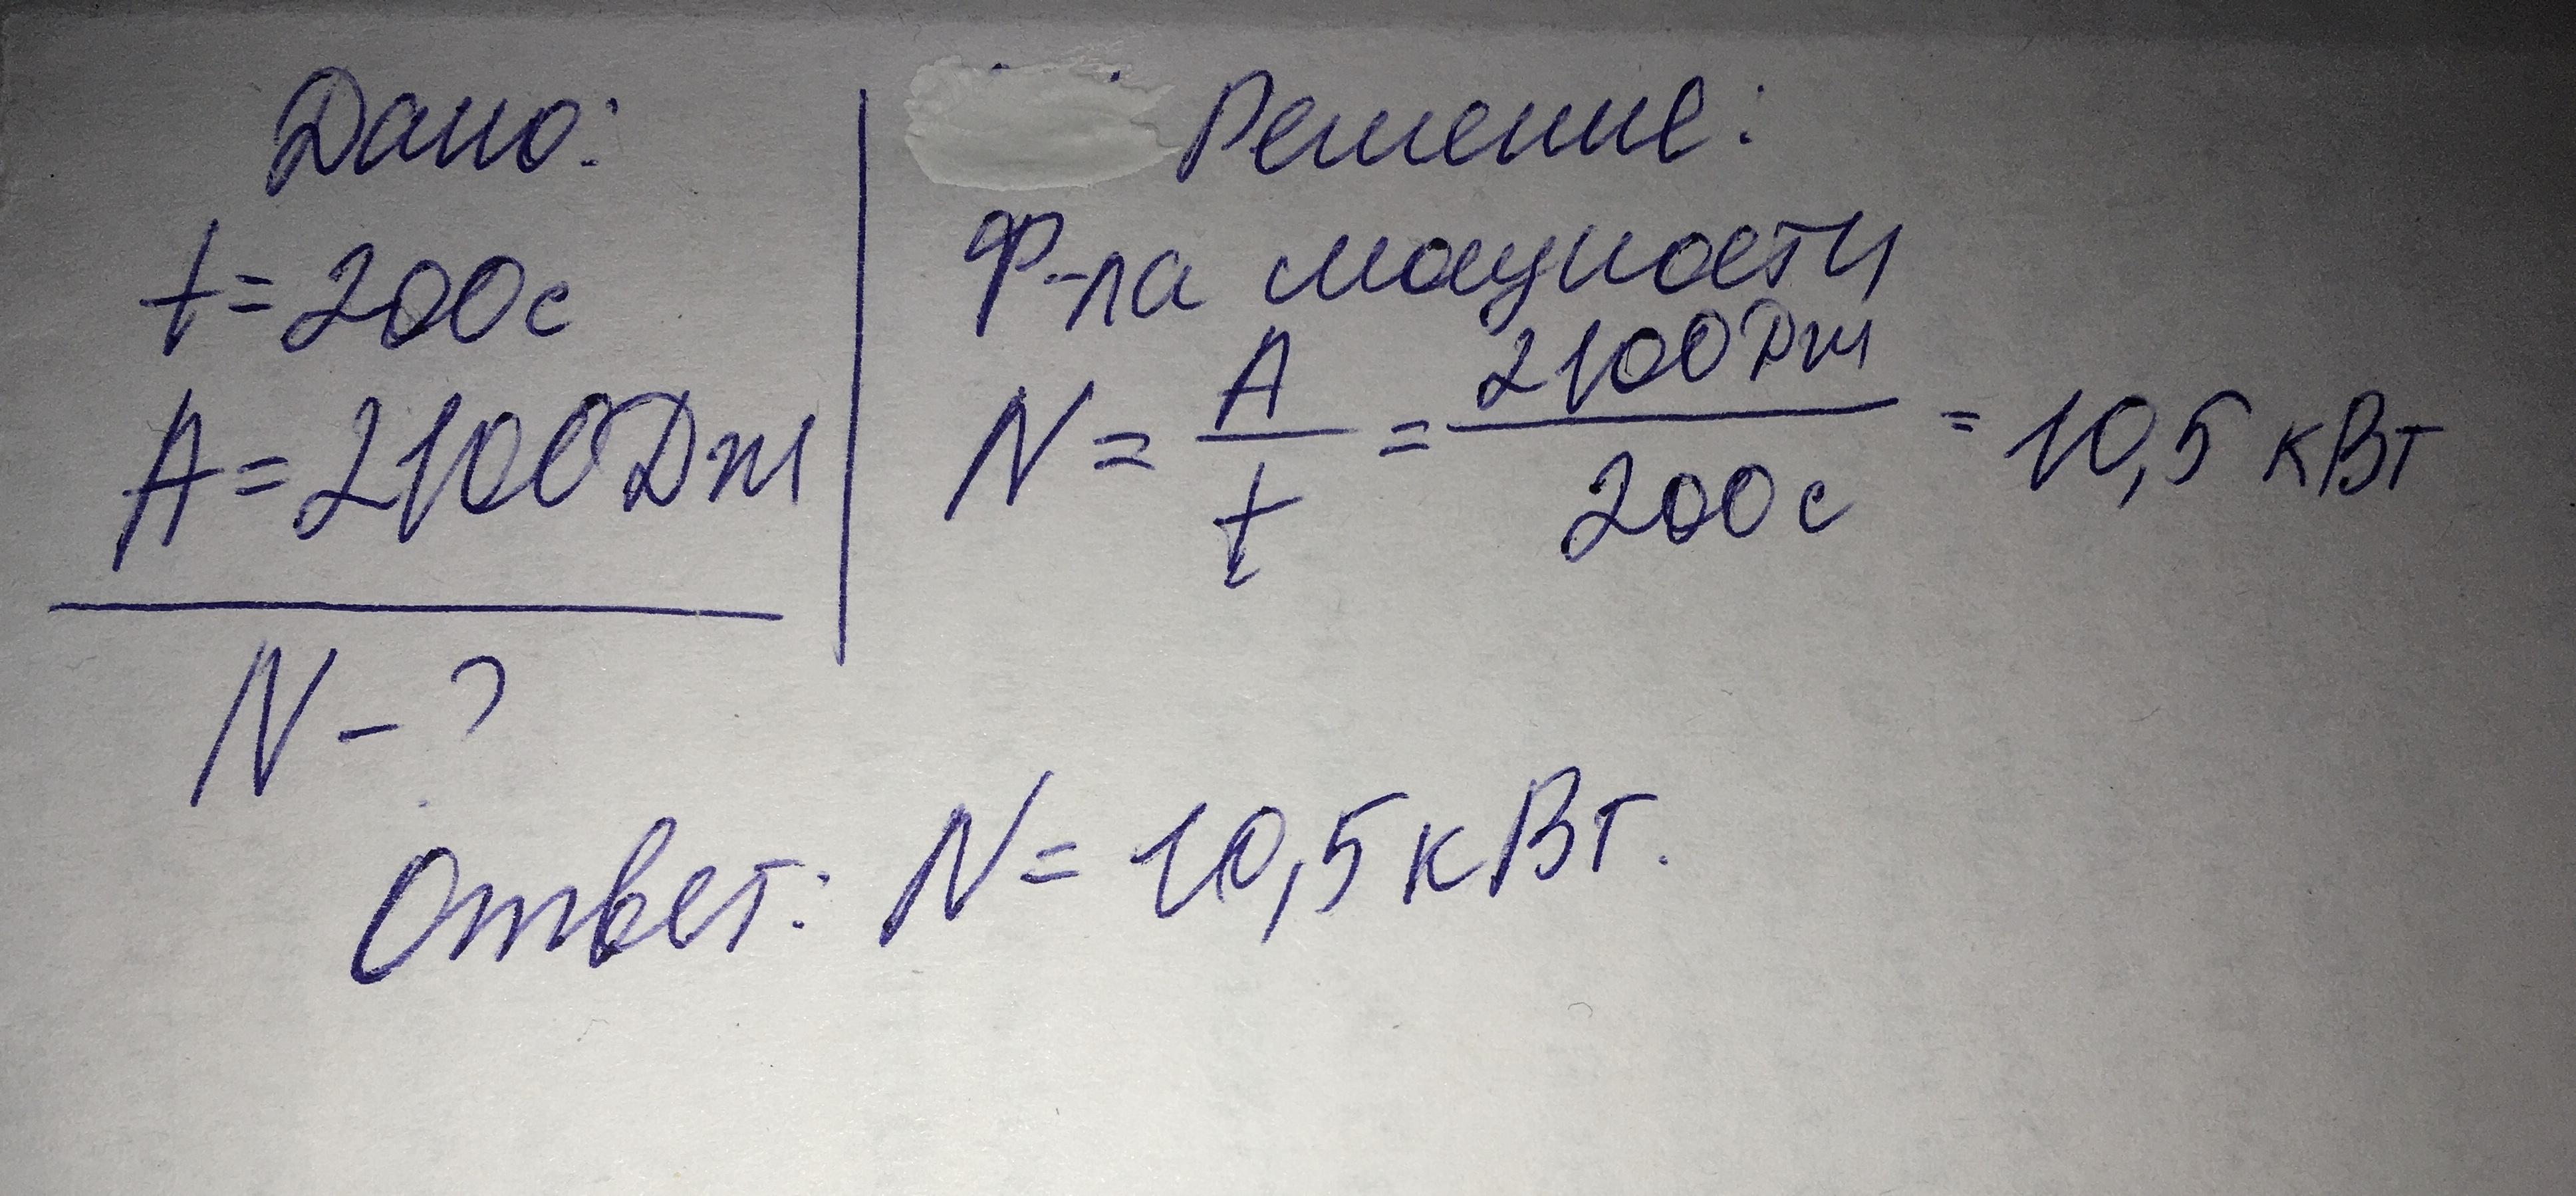 Дано:
t = 200с
A = 2100Дж
N - ?
Решение:
Ф-ла мощности
N = A / t = 2100Дж / 200с = 10,5 кВт
Ответ: N = 10,5 кВт.